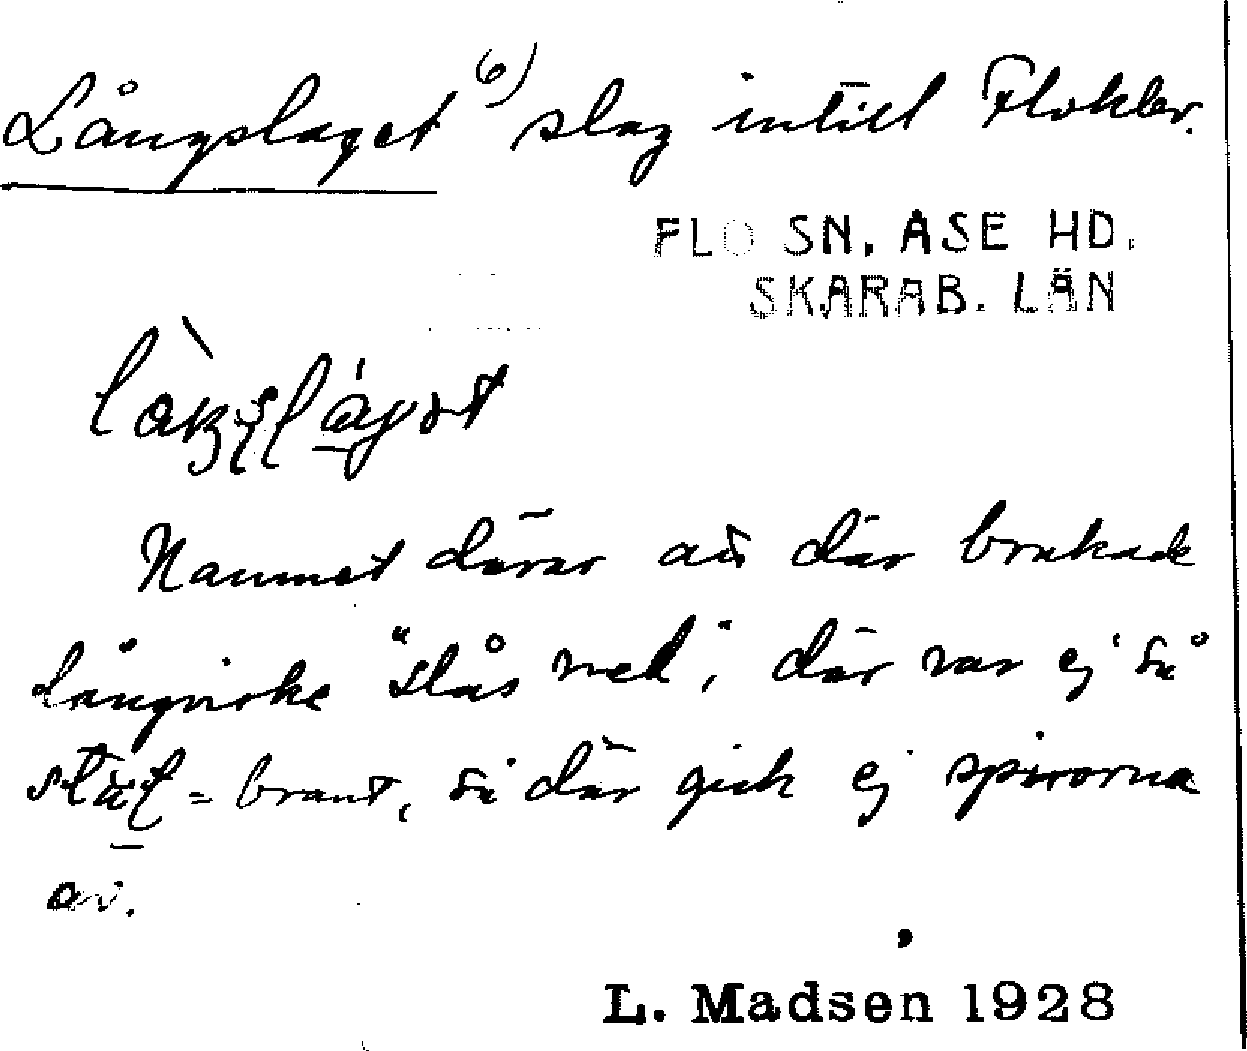 Långslaget 6) slag intill Flokler.
FLO SN. ASE HD.
SKARAB. LÄN
Namnet därav att där brukade
långvirke "slås ned"; där var ej så
stäl = brant, så där gick ej spirorna
av.
L. Madsen 1928